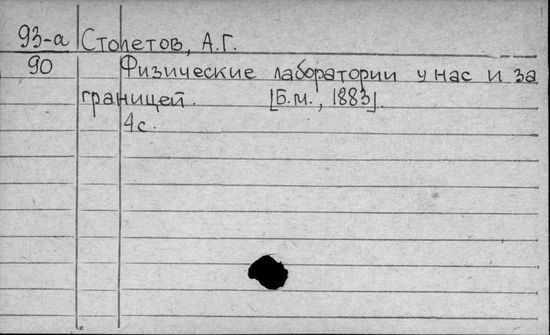 93-а Столетов, А.Г.
90 Физические лаборатории у нас и за
границей. [Б.м., 1883].
4с.